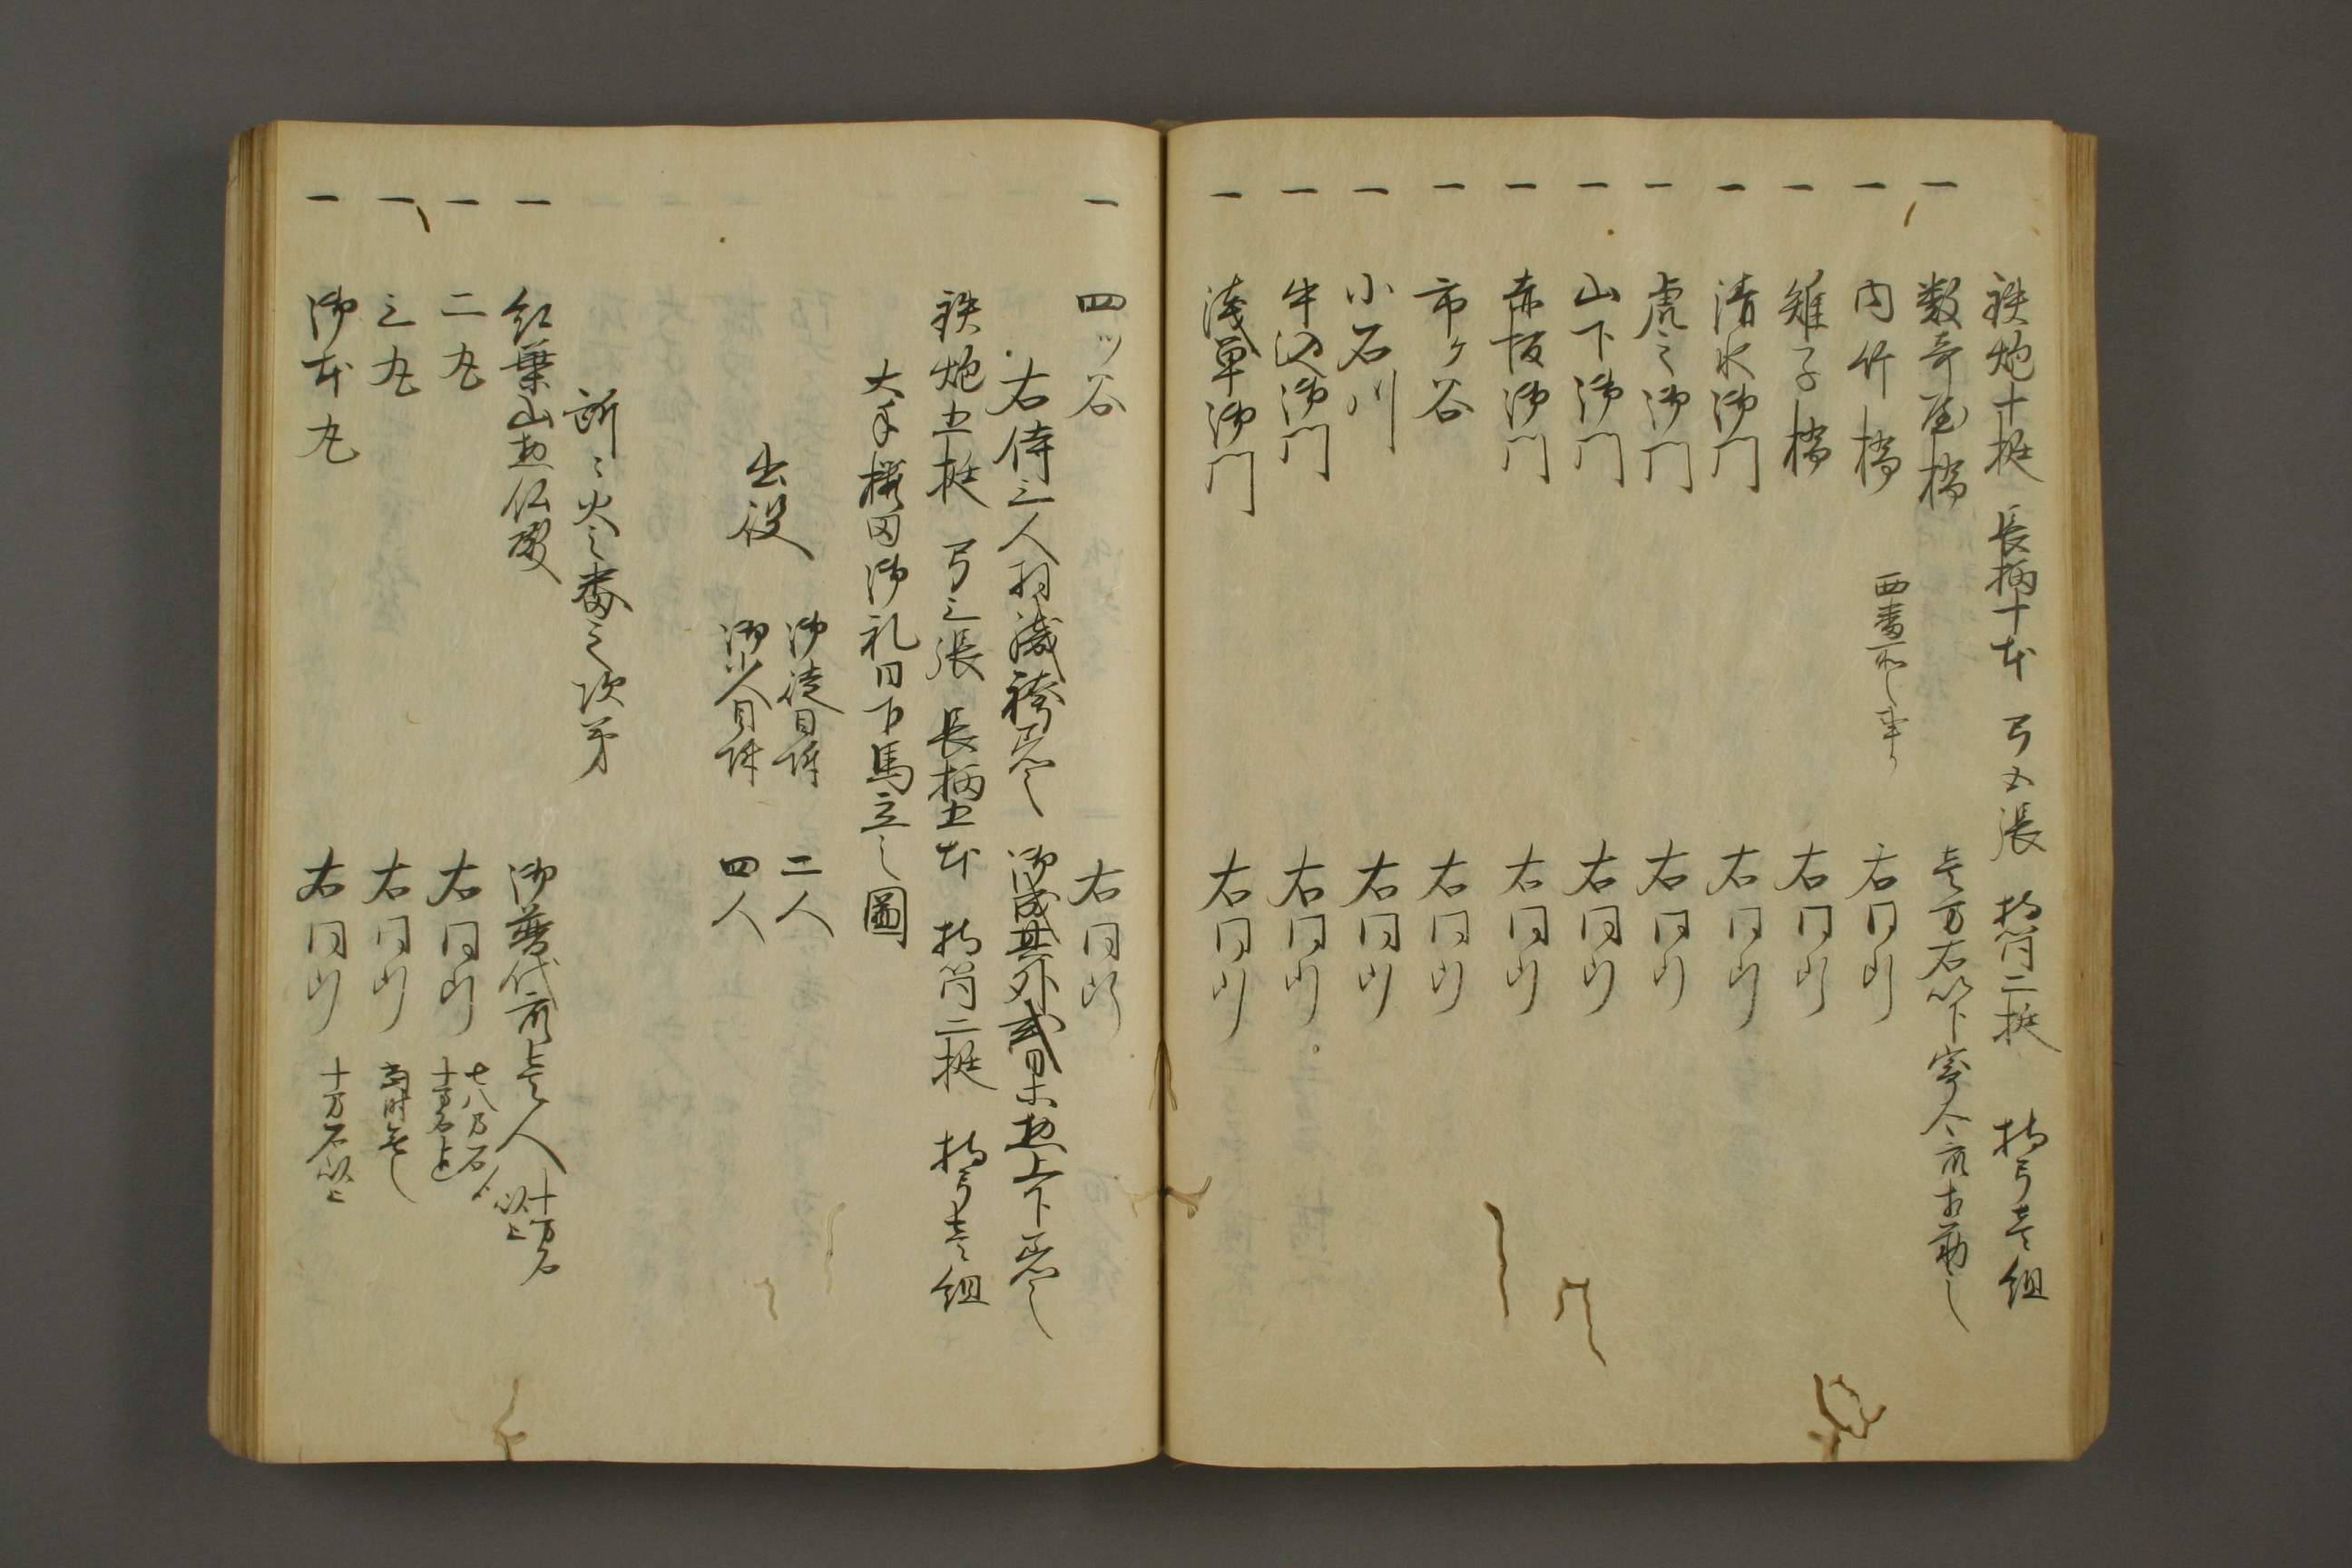 鉄炮十挺 長柄十本 弓五張 持筒二挺 持弓壱組
一 数寄屋橋 壱万石以下寄合衆相勤之
一 内竹橋 右同断
一 雉子橋 右同断
一 清水御門 右同断
一 虎之御門 右同断
一 山下御門 右同断
一 赤坂御門 右同断
一 市ヶ谷 右同断
一 小石川 右同断
一 牛込御門 右同断
一 浅草御門 右同断
一 四ッ谷 右同断
右侍三人羽織袴着之 御成其外式日ニ者上下着之
鉄炮五挺 弓三張 長柄五本 持筒二挺 持弓壱組
大手桜田御礼日下馬立之圖
出役 御徒目附 二人
御小人目附 四人
所々火之番之次第
一 紅葉山惣仏殿 御譜代衆壱人 十万石以上
一 二丸 右同断 七八万石ゟ十万石迄
一 三丸 右同断 当時無之
一 御本丸 右同断 十万石以上